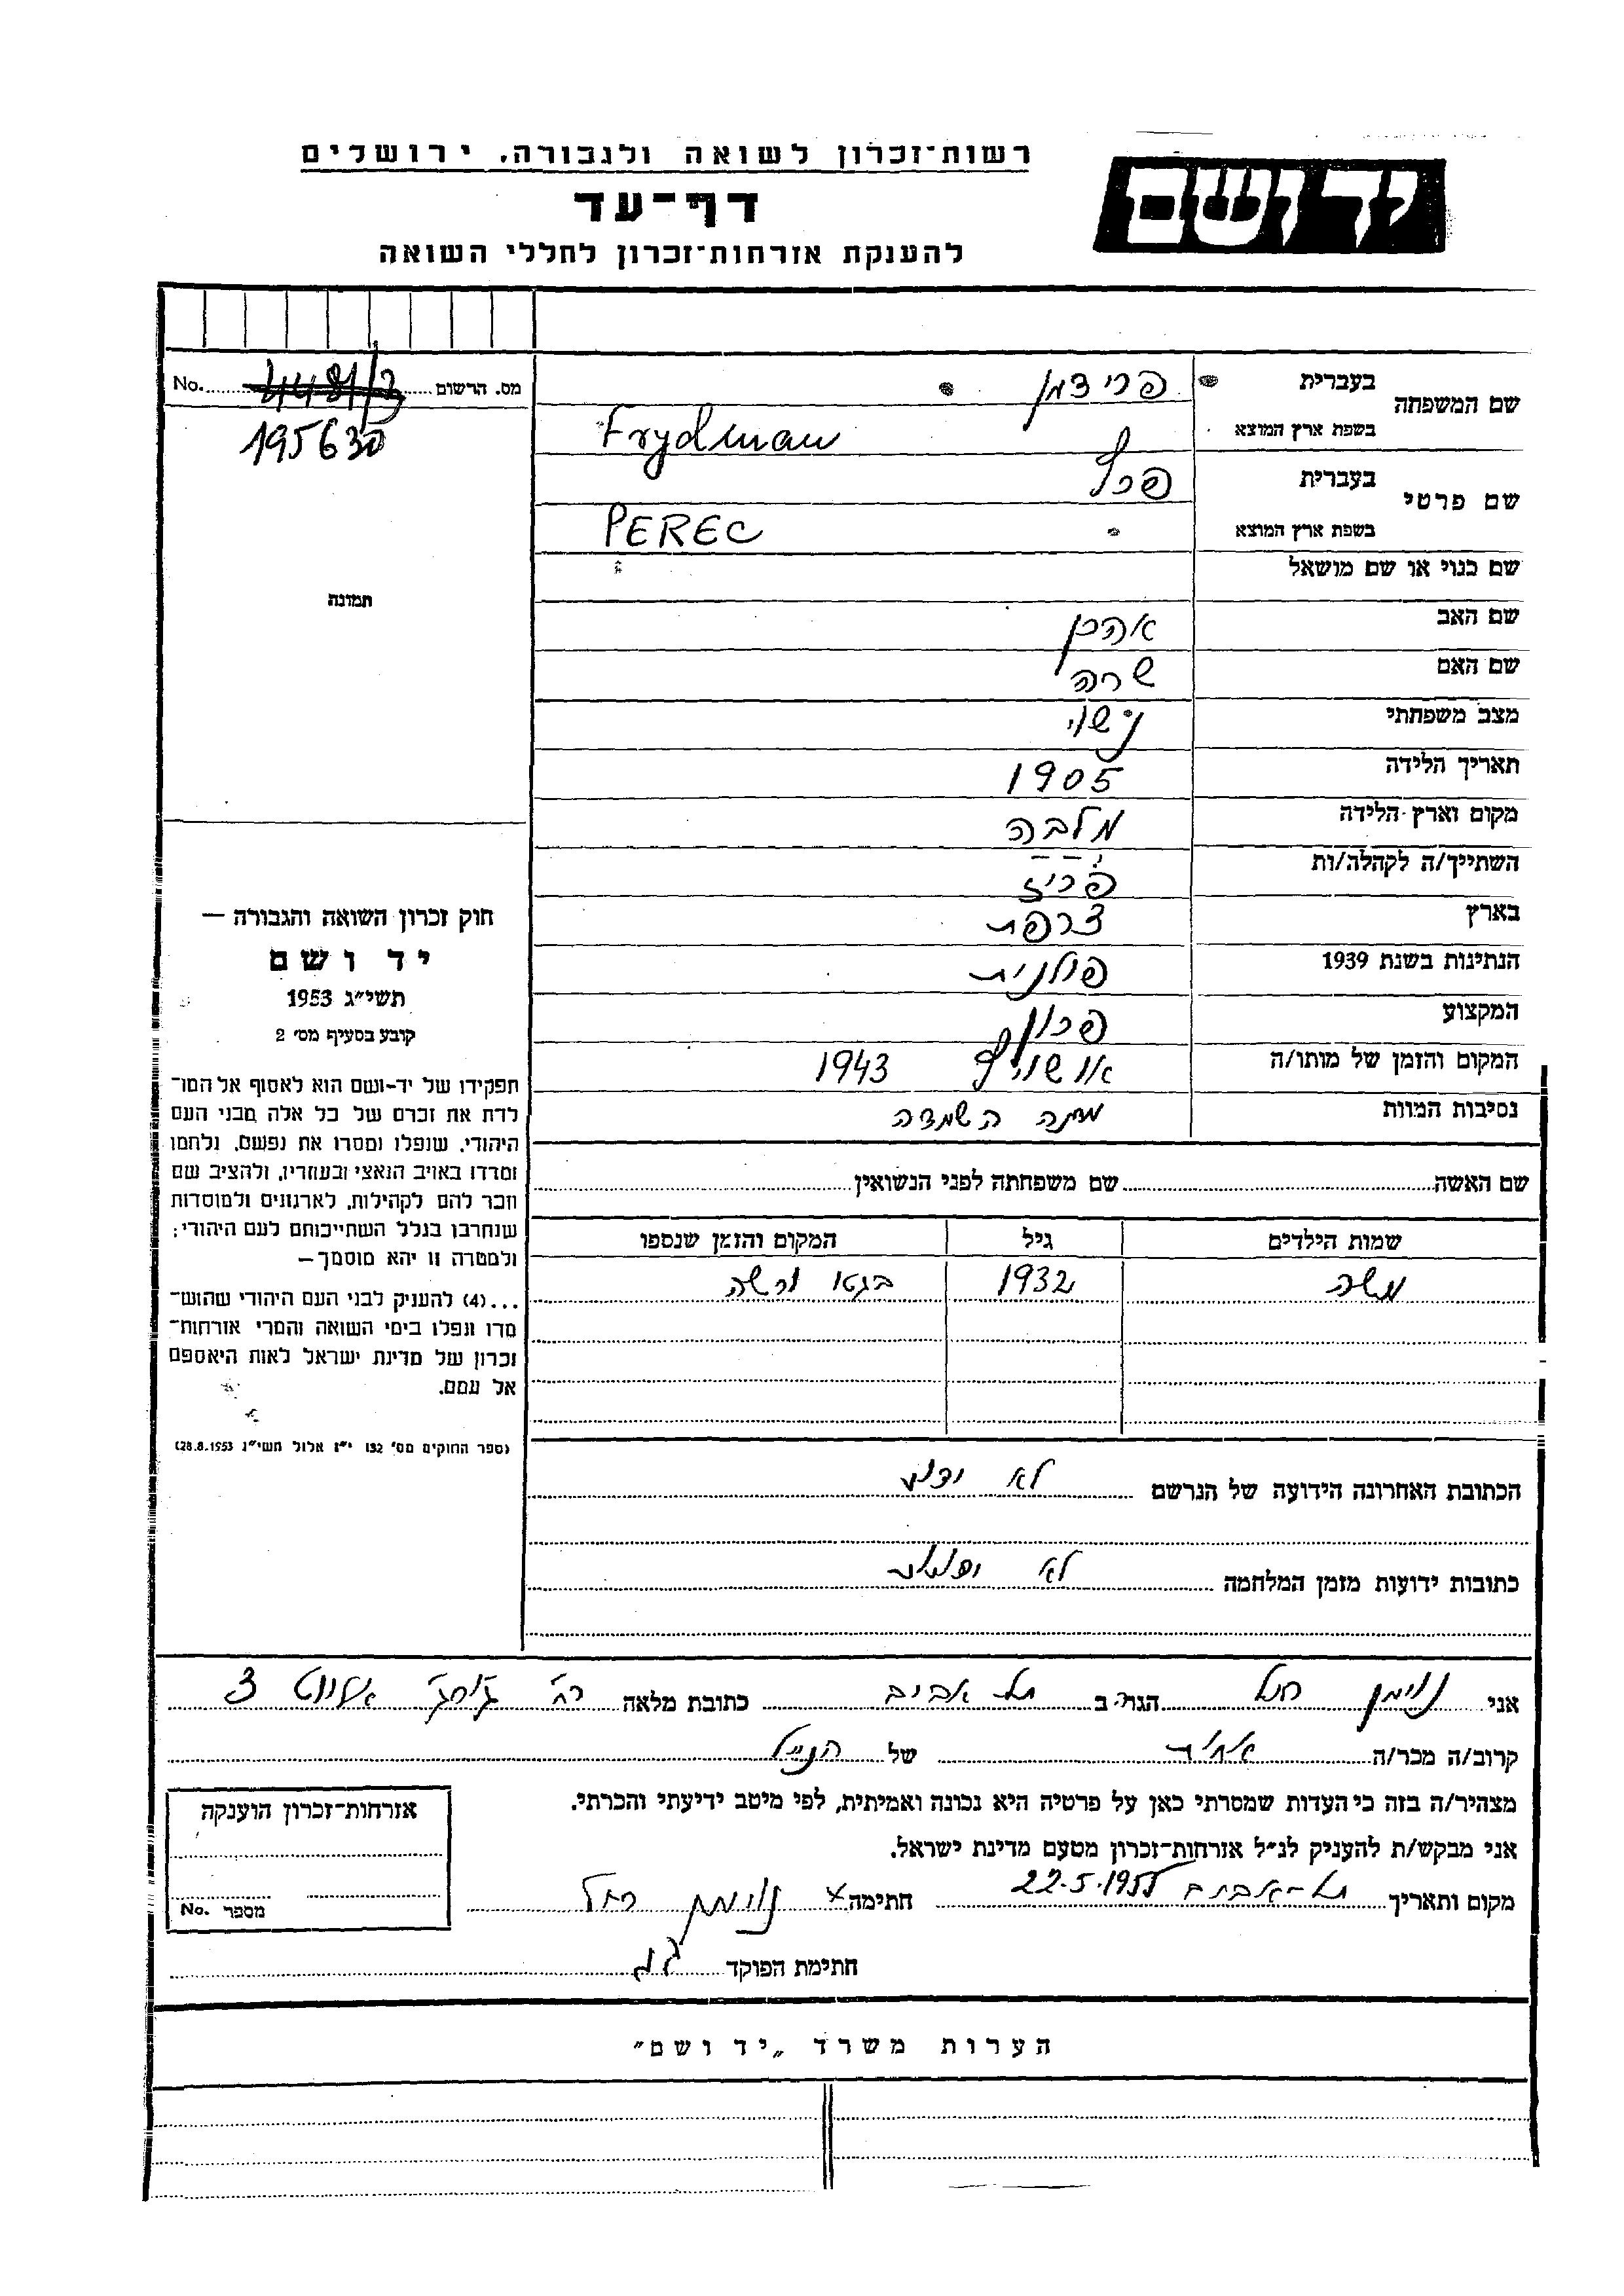 רשות־זכרון לשואה ולגבורה, ירושלים
יד ושם
דף־עד
להענקת אזרחות־זכרון לחללי השואה
מס. הרשום No.
195630
תמונה
שם המשפחה
בעברית פרידמן
בשפת ארץ המוצא Frydman
שם פרטי
בעברית פרץ
בשפת ארץ המוצא PEREC
שם כנוי או שם מושאל
שם האב אהרן
שם האם שרה
מצב משפחתי נשוי
תאריך הלידה 1905
מקום וארץ הלידה
השתייך/ה לקהלה/ות פריז
בארץ צרפת
הנתינות בשנת 1939 פולנית
המקצוע פרון
המקום והזמן של מותו/ה אושויץ 1943
נסיבות המוות מחנה השמדה
שם האשה שם משפחתה לפני הנשואין
שמות הילדים גיל המקום והזמן שנספו
משה 1932 בגטו ורשה
הכתובת האחרונה הידועה של הנרשם לא ידוע
כתובות ידועות מזמן המלחמה לא
חוק זכרון השואה והגבורה —
יד ושם
תשי״ג 1953
קובע בסעיף מס׳ 2
תפקידו של יד־ושם הוא לאסוף אל המו־
לדת את זכרם של כל אלה מבני העם
היהודי, שנפלו ומסרו את נפשם, נלחמו
ומרדו באויב הנאצי ובעוזריו, ולהציב שם
וזכר להם לקהילות, לארגונים ולמוסדות
שנחרבו בגלל השתייכותם לעם היהודי;
ולמטרה זו יהא מוסמך—
...(4) להענק לבני העם היהודי שהוש־
מדו ונפלו בימי השואה והמרי אזרחות־
זכרון של מדינת ישראל לאות היאספם
אל עמם.
(ספר החוקים מס׳ 132 י״ז אלול תשי״ג 28.8.1953)
אני נוימן רחל הגר/ה ב תל אביב כתובת מלאה רח׳ ג׳ורג׳ אליוט 3
קרוב/ה מכר/ה אחות של הנ״ל
מצהיר/ה בזה כי העדות שמסרתי כאן על פרטיה היא נכונה ואמיתית, לפי מיטב ידיעתי והכרתי.
אני מבקש/ת להעניק לנ״ל אזרחות־זכרון מטעם מדינת ישראל.
מקום ותאריך תל-אביב 22.5.1955 חתימה x נוימן רחל
חתימת הפוקד
אזרחות־זכרון הוענקה
מספר No.
הערות משרד „יד ושם״